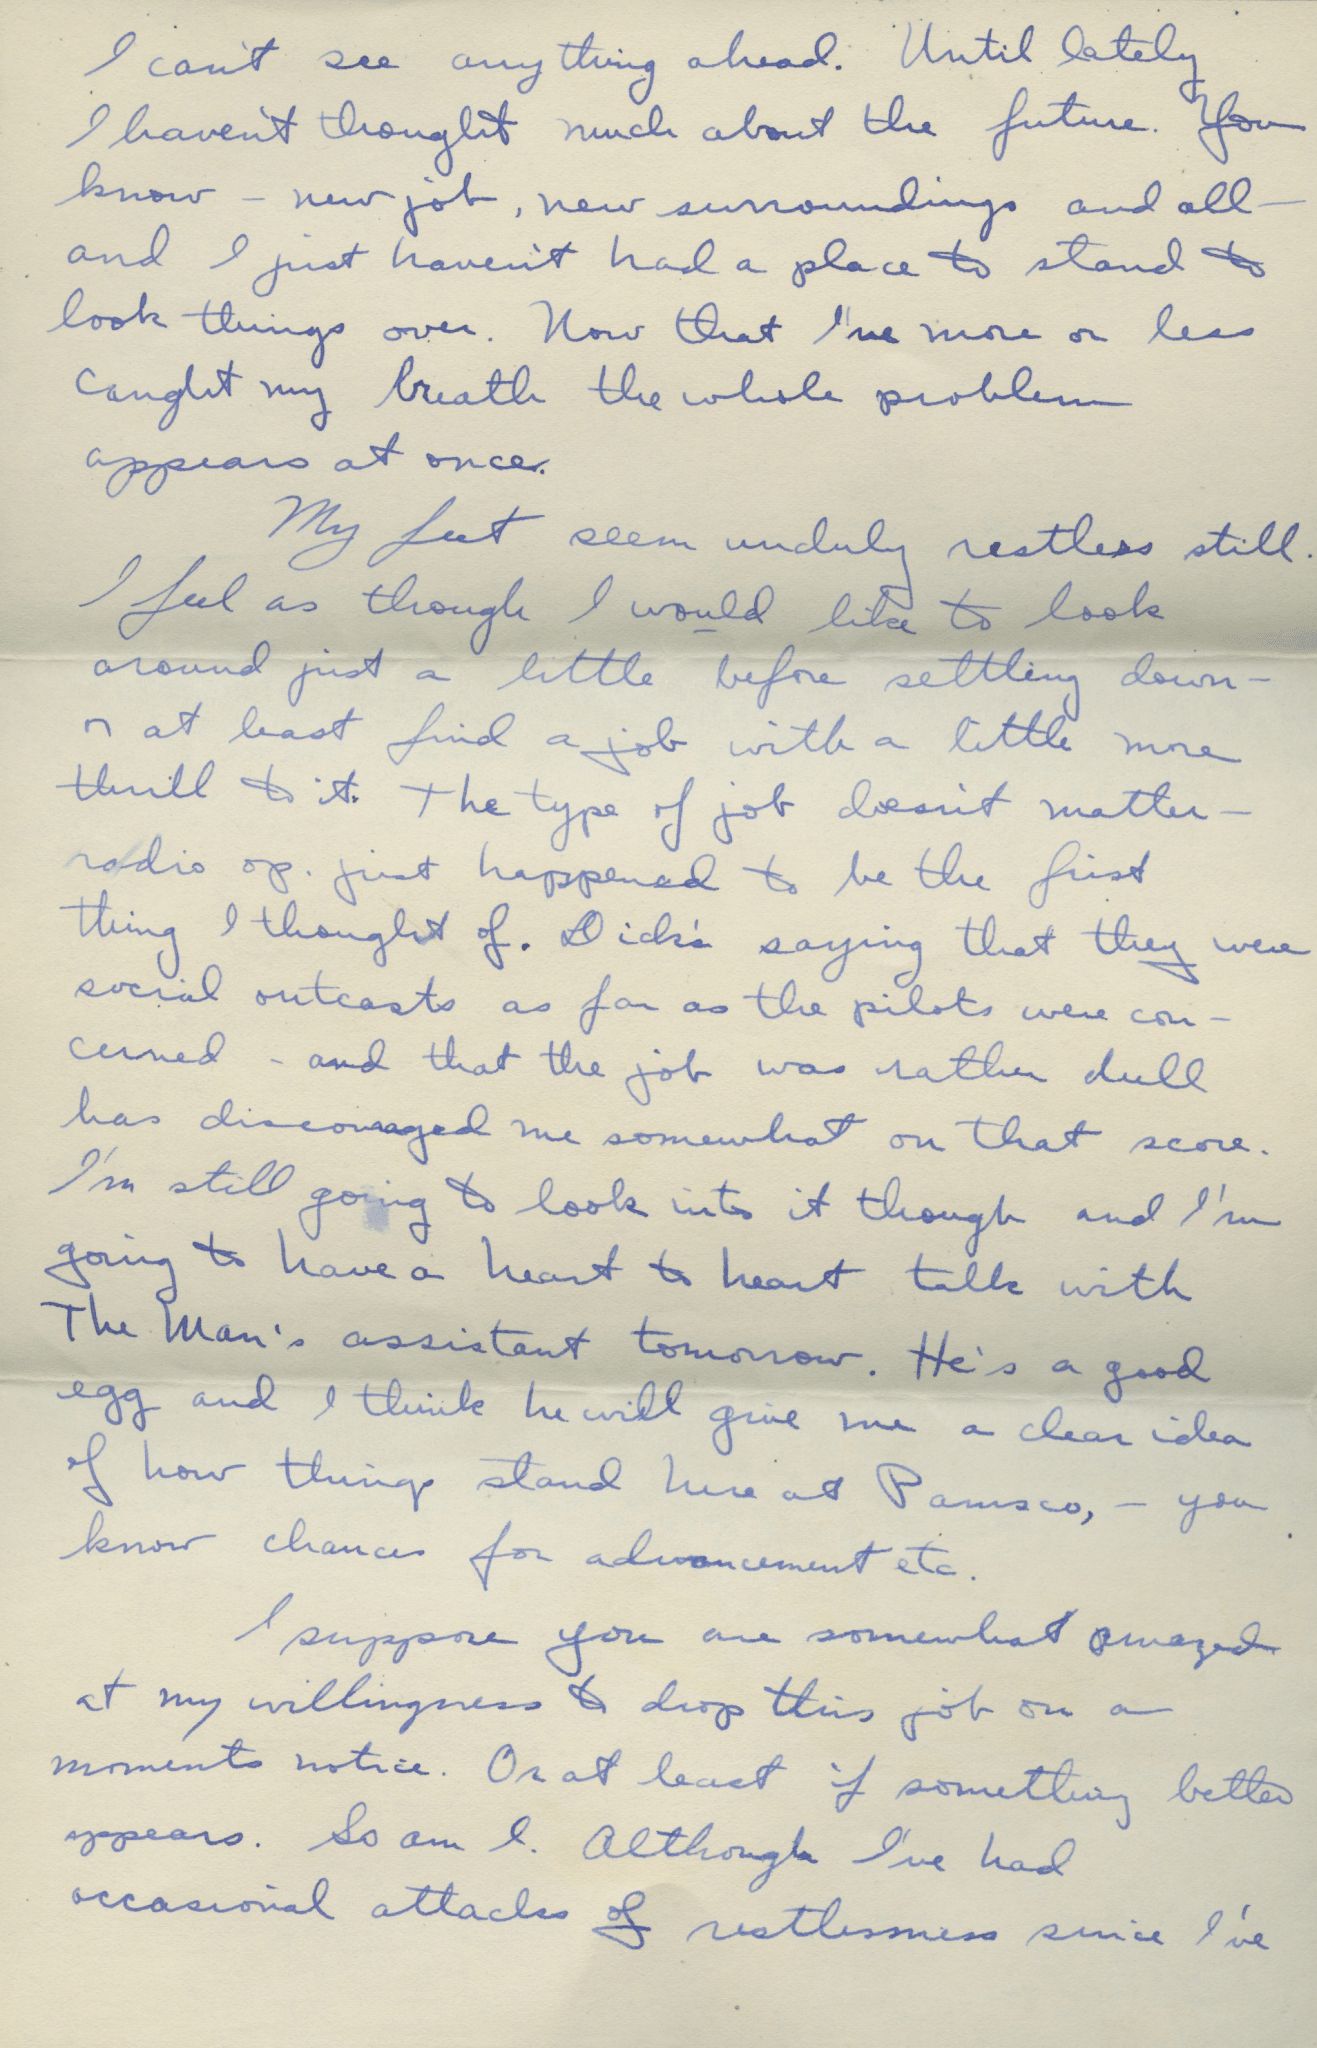 I can't see anything ahead. Until lately
I haven't thought much about the future. You
know – new job, new surroundings and all –
and I just haven't had a place to stand to
look things over. Now that I've more or less
caught my breath the whole problem
appears at once.
My feet seem unduly restless still.
I feel as though I would like to look
around just a little before settling down –
or at least find a job with a little more
thrill to it. The type of job doesn't matter –
radio op. just happened to be the first
thing I thought of. Dick's saying that they were
social outcasts as far as the pilots were con-
cerned – and that the job was rather dull
has discouraged me somewhat on that score.
I'm still going to look into it though and I'm
going to have a heart to heart talk with
The Man's assistant tomorrow. He's a good
egg and I think he will give me a clear idea
of how things stand here at Pamsco, – you
know chances for advancement etc.
I suppose you are somewhat amazed
at my willingness to drop this job on a
moments notice. Or at least if something better
appears. So am I. Although I've had
occasional attacks of restlessness since I've